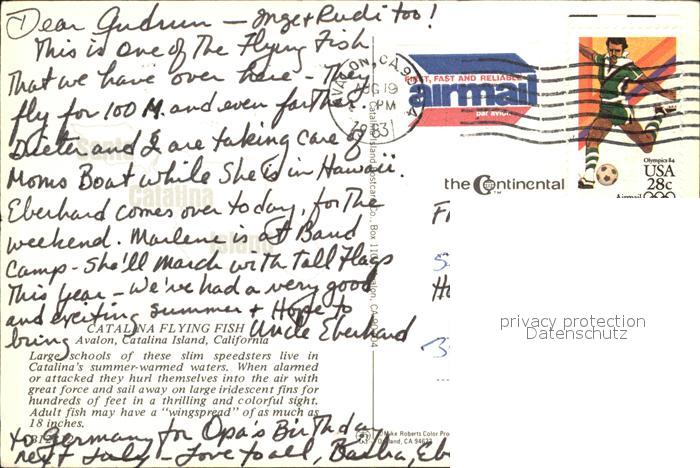 Dear Gudrun - Inge + Rudi too!
This is one of The Flying Fish
That we have over here - They
fly for 100 M. and even farther.
Dieter and I are taking care of
Moms Boat while She is in Hawaii.
Eberhard comes over today, for The
weekend. Marlene is at Band
Camp - She'll March with Tall Flags
This Year - We've had a very good
and exciting summer + Hope to
bring Uncle Eberhard
to Germany for Opa's Birthday
next July - Love to all,
CATALINA FLYING FISH
Avalon, Catalina Island, California
Large schools of these slim speedsters live in
Catalina's summer-warmed waters. When alarmed
or attacked they hurl themselves into the air with
great force and sail away on large iridescent fins for
hundreds of feet in a thrilling and colorful sight.
Adult fish may have a "wingspread" of as much as
18 inches.
Catalina
Island
AVALON, CA 9
19
PM
1983
FIRST, FAST AND RELIABLE
airmail
par avion
Olympics 84
USA
28c
Airmail
the Continental
TM
Catalina Island Postcard Co., Box 110
Mike Roberts Color
land, CA
privacy protection
Datenschutz